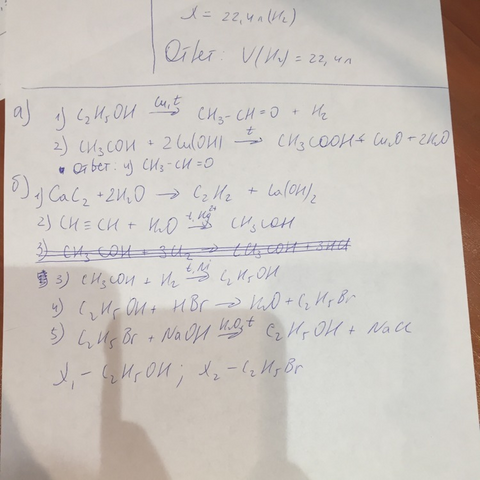 x = 22,4л(H₂)
Ответ: V(H₂) = 22,4л
а) 1) C₂H₅OH →(Cu,t) CH₃-CH=O + H₂
2) CH₃COH + 2Cu(OH) →(t) CH₃COOH + Cu₂O + 2H₂O
Ответ: CH₃-CH=O
б) 1) CaC₂ + 2H₂O → C₂H₂ + Ca(OH)₂
2) CH≡CH + H₂O →(t, Hg²⁺) CH₃COH
3) CH₃COH + 3Cl₂ → CCl₃COH + 3HCl
3) CH₃COH + H₂ →(t, Ni) C₂H₅OH
4) C₂H₅OH + HBr → H₂O + C₂H₅Br
5) C₂H₅Br + NaOH →(H₂O, t) C₂H₅OH + NaCl
X₁ - C₂H₅OH; X₂ - C₂H₅Br